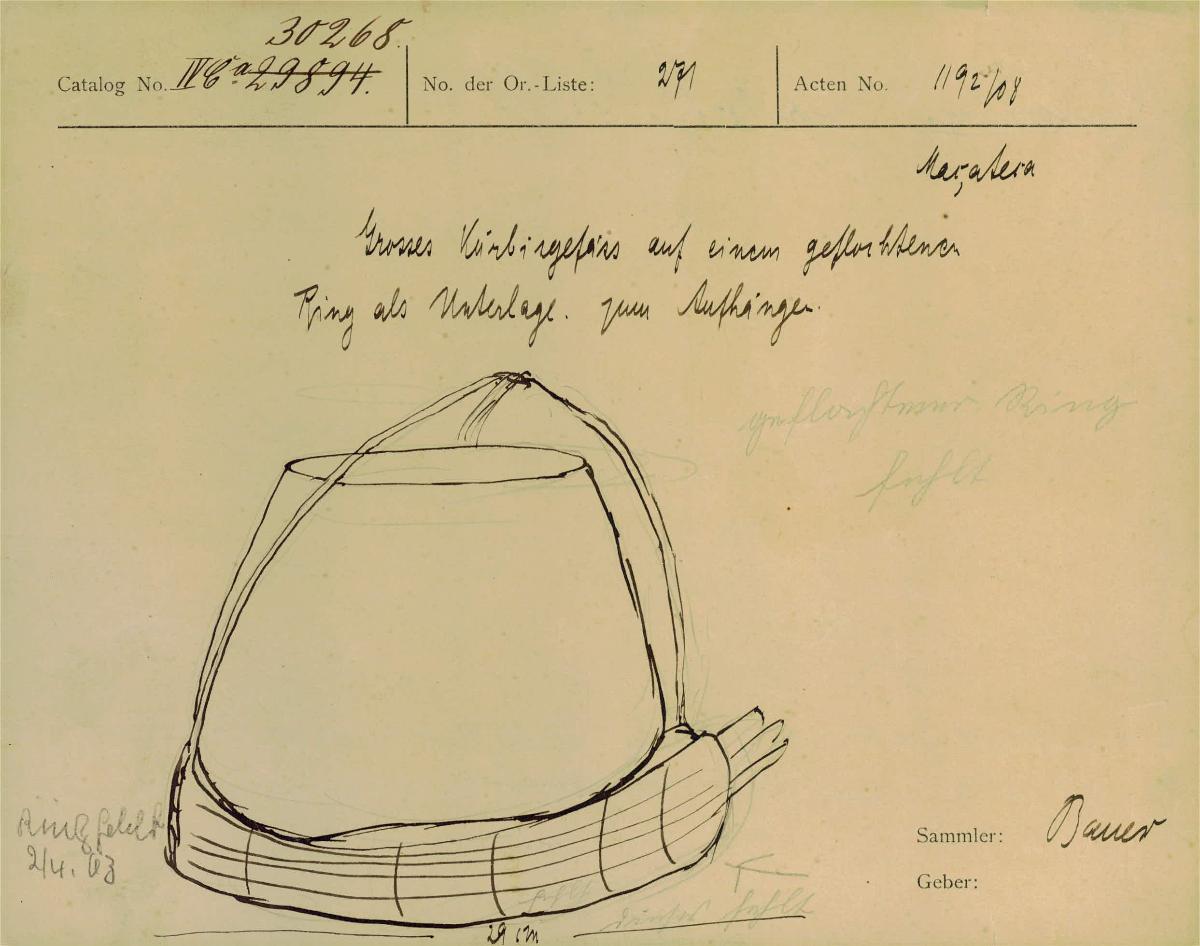 30268.
Catalog No. IV Ca 29894. No. der Or.-Liste: 271 Acten No. 1192/08
Maçateca
Grosses Kürbisgefäss auf einem geflochtenen
Ring als Unterlage. zum Aufhängen.
geflochtener Ring
fehlt
Ring fehlt
2/4.
Sammler: Bauer
Geber:
fehlt
dieses fehlt
29 cm